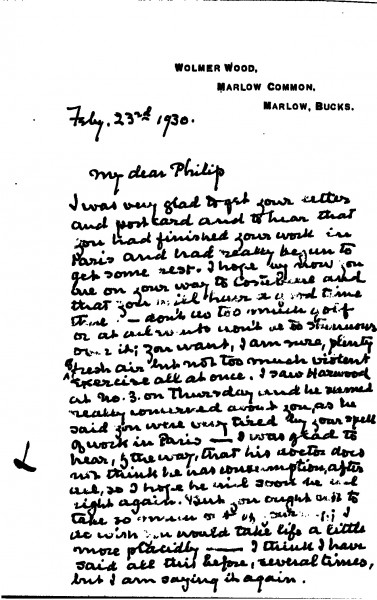 WOLMER WOOD,
MARLOW COMMON,
MARLOW, BUCKS.
Feby. 23rd 1930.
My dear Philip
I was very glad to get your letter
and postcard and to hear that
you had finished your work in
Paris and had really begun to
get some rest. I hope by now you
are on your way to and
that you will have a good time
there — don't do too much golf
or at all events don't be so strenuous
over it; you want, I am sure, plenty
of fresh air but not too much violent
exercise all at once. I saw Harwood
at No. 3. on Thursday and he seemed
really concerned about you, as he
said you were very tired by your spell
of work in Paris — I was glad to
hear, by the way, that his doctor does
not think he has consumption, after
all, so I hope he will soon be all
right again. But you ought not to
take so much I
do wish you would take life a little
more placidly — I think I have
said all this before, several times,
but I am saying it again.